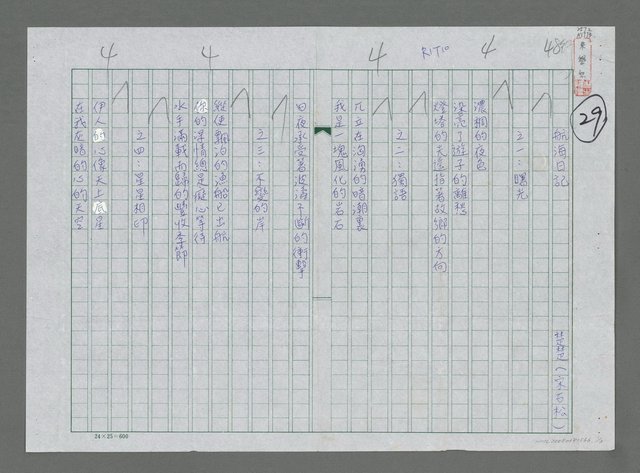 29
4
4
4
4
484
R1710
航海日記
之一：曙光
濃稠的夜色
染亮了遊子的離愁
燈塔的光遙指著故鄉的方向
之二：獨語
兀立在洶湧的暗潮裏
我是一塊風化的岩石
日夜承受著波濤不斷的衝擊
之三：不變的岸
縱使飄泊的漁船已出航
你的深情總是癡心等待
水手滿載而歸的豐收季節
之四：星星相印
伊人的心像天上底星
在我灰暗的心的天空
24×25=600